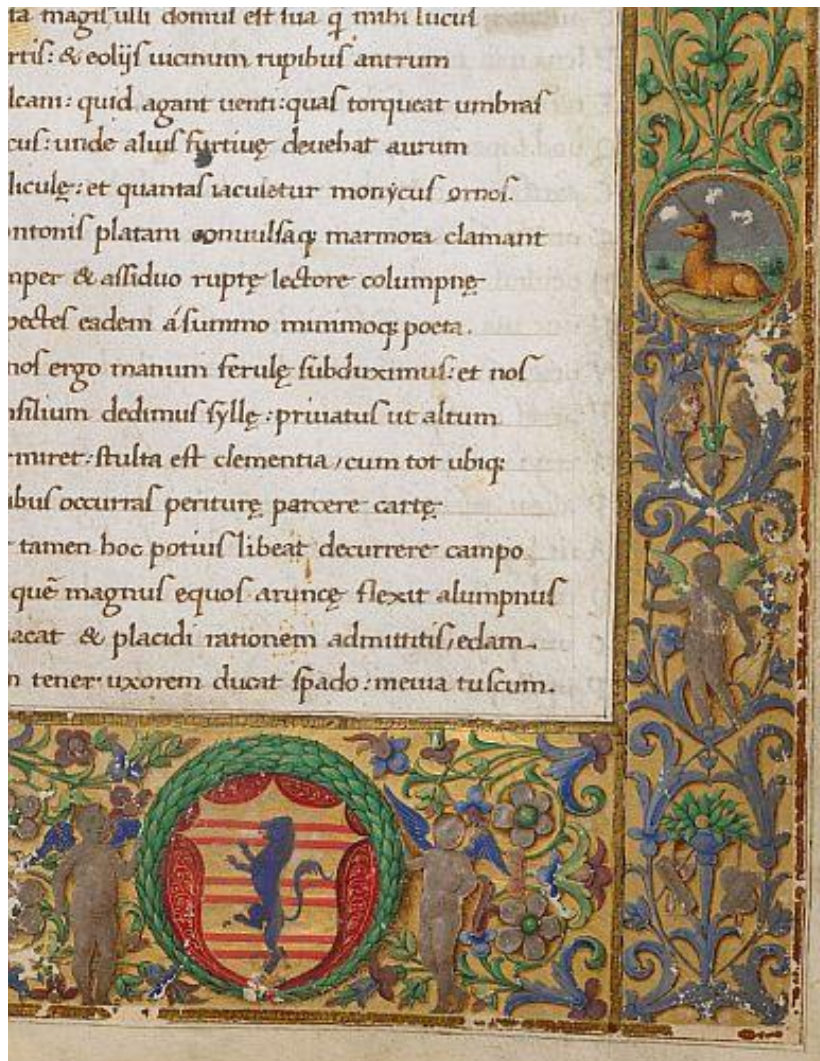 ta magis ulli domus est sua q̄ mihi lucus
rtis: & eolijs uicinum rupibus antrum
lcani: quid agant uenti: quas torqueat umbras
cus: unde alius furtiuę deuehat aurum
liculę: et quantas iaculetur monẏcus ornos.
ontonis platani conuulsaq; marmora clamant
mper & assiduo ruptę lectore columpnę
pectes eadem á summo minimoq; poeta.
nos ergo manum ferulę subduximus: et nos
nsilium dedimus syllę: priuatus ut altum
rmiret: stulta est clementia, cum tot ubiq;
ibus occurras periturę parcere cartę
tamen hoc potius libeat decurrere campo
quē magnus equos aruncę flexit alumpnus
acat & placidi rationem admittitis, edam.
n tener uxorem ducat spado: meuia tuscum.